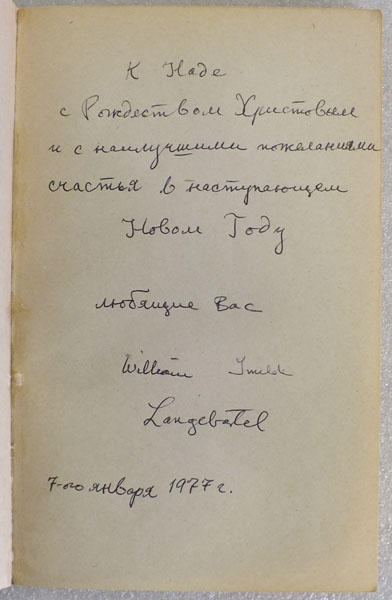 К Наде
с Рождеством Христовым
и с наилучшими пожеланиями
счастья в наступающем
Новом Году
любящие Вас
William
Langebartel
7-ого января 1977 г.